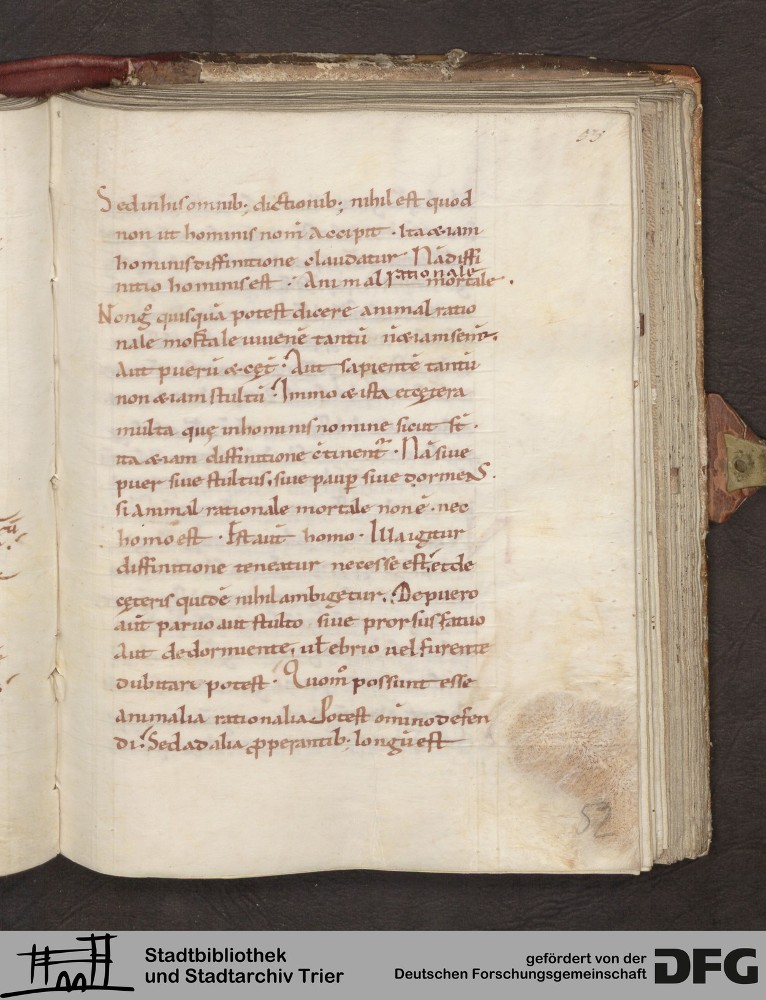 Sed in his omnib; dictionib; nihil est quod
non ut hominis nom̄ accipit · Ita & iam
hominis diffinitione claudatur Nā diffi
nitio hominis est : Animal rationale mortale .
Nong̛ quisquā potest dicere animal ratio
nale mortale uiuere tantū
Aut puerū & cęt̄ · Aut sapientē tantū
non & iam stultū ? Immo & ista etcętera
multa quę in hominis nomine sicut st̄ ·
ita & iam diffinitione c̄tinent̄ · Nā siue
puer siue stultus, siue paup̱ siue dormens .
si animal rationale mortale non ē · nec
homo est · Est aut̄ homo · Illa igitur
diffinitione teneatur necesse est, et de
cęteris quidē nihil ambigetur, De puero
aut̄ paruo aut stulto · siue prorsus fatuo
Aut de dormiente, ut ł ebrio uel furente
dubitari potest · Quom̄ possunt esse
animalia rationalia Potest om̄ino defen
di : Sed ad alia p̱perantib; longū est
52
Stadtbibliothek
und Stadtarchiv Trier
gefördert von der
Deutschen Forschungsgemeinschaft
DFG